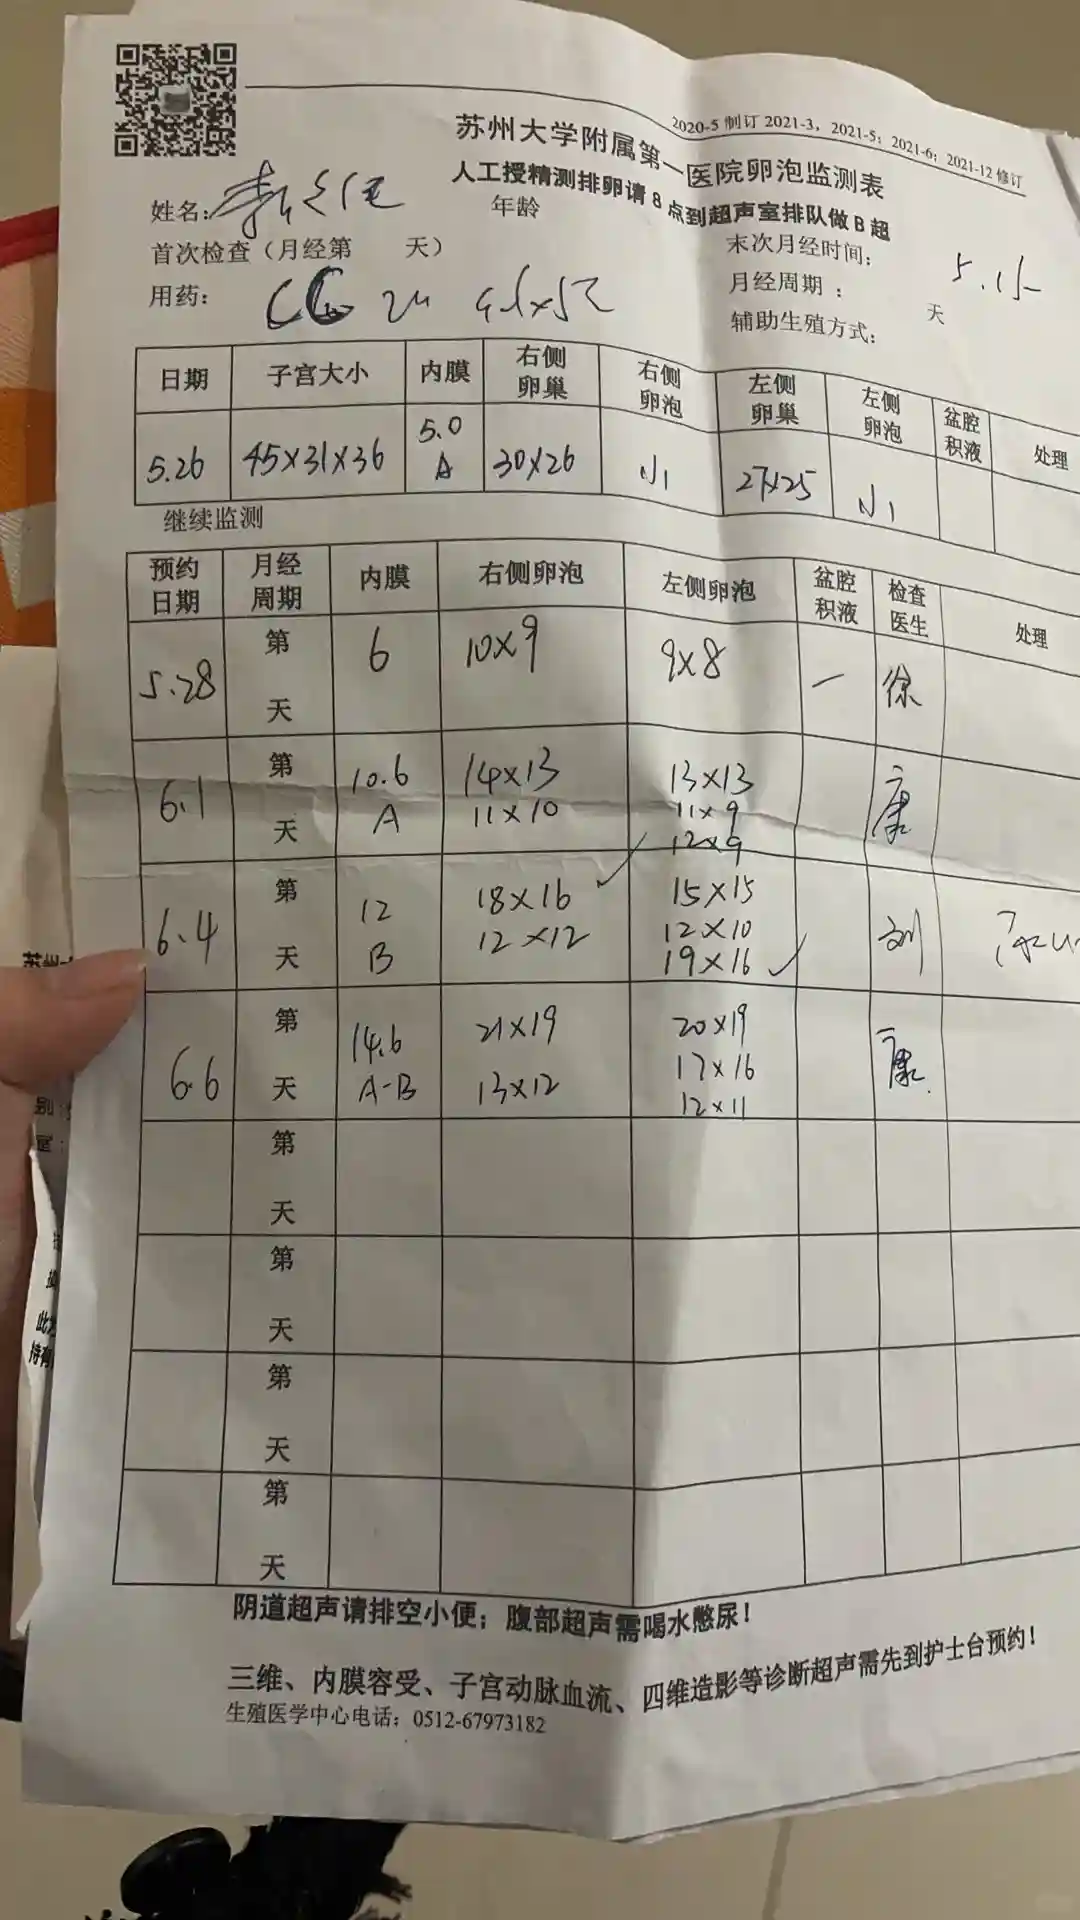 2020-5 制订 2021-3，2021-5；2021-6；2021-12 修订
苏州大学附属第一医院卵泡监测表
人工授精测排卵请 8 点到超声室排队做 B 超
姓名： 年龄
首次检查（月经第 天） 末次月经时间： 5.15
用药： 月经周期： 天
辅助生殖方式：
日期 子宫大小 内膜 右侧卵巢 右侧卵泡 左侧卵巢 左侧卵泡 盆腔积液 处理
5.26 45×31×36 5.0 A 30×26 N1 27×25 N1
继续监测
预约日期 月经周期 内膜 右侧卵泡 左侧卵泡 盆腔积液 检查医生 处理
5.28 第 天 6 10×9 9×8 一 徐
6.1 第 天 10.6 A 14×13 11×10 13×13 11×9 12×9 康
6.4 第 天 12 B 18×16 ✓ 12×12 15×15 12×10 19×16 ✓ 刘
6.6 第 天 14.6 A-B 21×19 13×12 20×19 17×16 12×11 康
第 天
第 天
第 天
第 天
阴道超声请排空小便；腹部超声需喝水憋尿！
三维、内膜容受、子宫动脉血流、四维造影等诊断超声需先到护士台预约！
生殖医学中心电话：0512-67973182